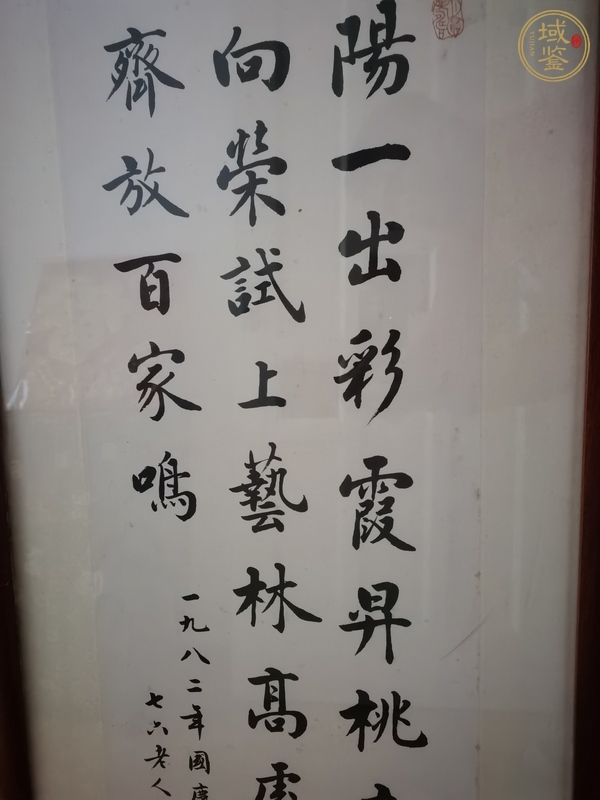 陽一出彩霞昇桃
向榮試上藝林高
齊放百家鳴
一九八二年國慶
七六老人
域鉴